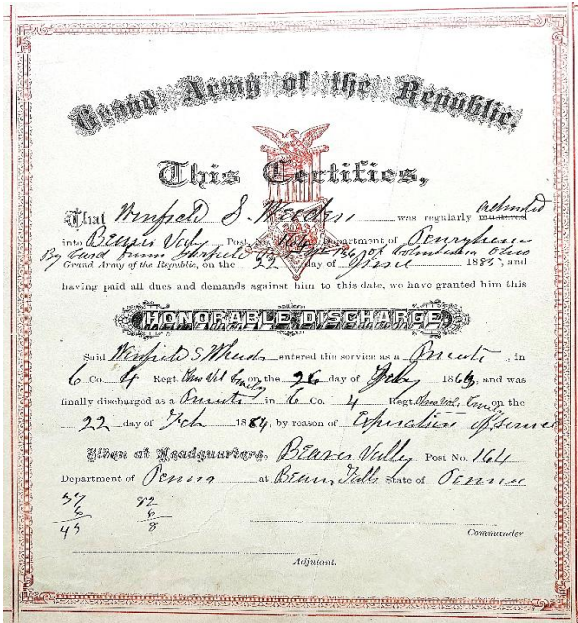 Grand Army of the Republic.
This Certifies,
That Winfield S. was regularly mustered admitted
into Beaver Valy Post No. 164 Department of
By Card from Garfield Post of Columbiana Ohio
Grand Army of the Republic, on the 22 day of 188 , and
having paid all dues and demands against him to this date, we have granted him this
HONORABLE DISCHARGE
Said Winfield S entered the service as a Private , in
6 Co. 4 Regt. Ohio Vol Cavalry on the 26 day of Feby 186 , and was
finally discharged as a Private in 6 Co. 4 Regt. Ohio Vol. Cavalry on the
22 day of Feb 1884, by reason of Expiration of Service
Given at Headquarters, Beaver Valley Post No. 164
Department of Penna at Beaver Falls State of Penna
6 6
8
Commander
Adjutant.